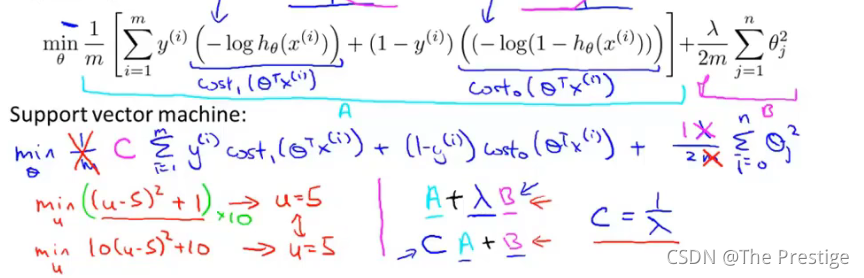 min_θ 1/m [ Σ_{i=1}^{m} y^{(i)} (−log h_θ(x^{(i)})) + (1 − y^{(i)}) ((−log(1 − h_θ(x^{(i)})))) ] + λ/2m Σ_{j=1}^{n} θ_j^2
cost_1(θ^T x^{(i)}) cost_0(θ^T x^{(i)})
A B
Support vector machine:
min_θ 1/m C Σ_{i=1}^{m} y^{(i)} cost_1(θ^T x^{(i)}) + (1-y^{(i)}) cost_0(θ^T x^{(i)}) + 1 λ/2 m Σ_{j=0}^{n} θ_j^2
min_u ((u-5)^2 + 1) ×10 → u=5 A + λ B ←
↕ C = 1/λ
min_u 10(u-5)^2+10 → u=5 → C A + B ←
CSDN @The Prestige